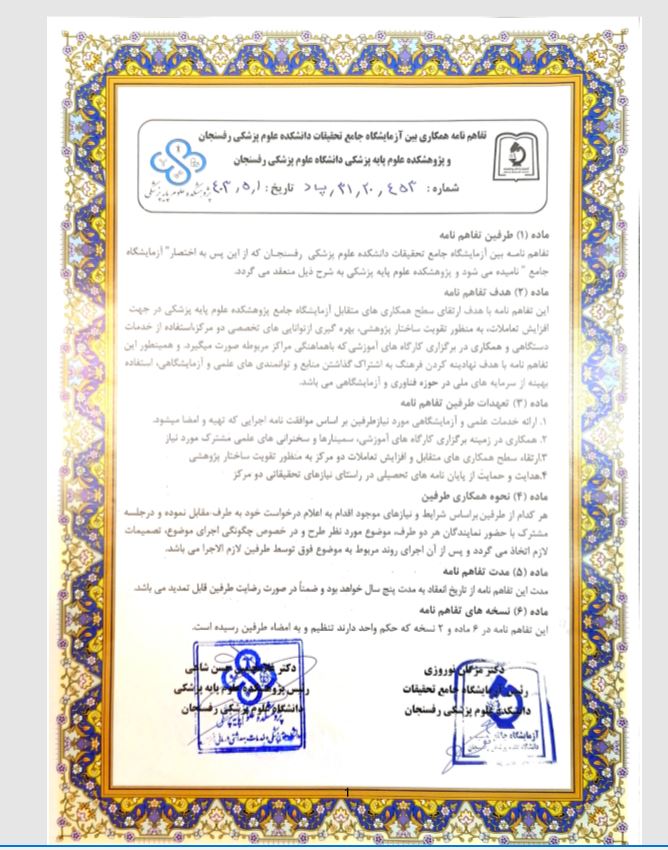 تفاهم نامه همکاری بین آزمایشگاه جامع تحقیقات دانشکده علوم پزشکی رفسنجان
و پژوهشکده علوم پایه پزشکی دانشگاه علوم پزشکی رفسنجان
شماره : ۴۵۳ / ۲۰ / ۳۱ / پ د تاریخ : ۴۰۳/۵/۱
پژوهشکده علوم پایه پزشکی
ماده (۱) طرفین تفاهم نامه
تفاهم نامه بین آزمایشگاه جامع تحقیقات دانشکده علوم پزشکی رفسنجان که از این پس به اختصار" آزمایشگاه
جامع " نامیده می شود و پژوهشکده علوم پایه پزشکی به شرح ذیل منعقد می گردد.
ماده (۲) هدف تفاهم نامه
این تفاهم نامه با هدف ارتقای سطح همکاری های متقابل آزمایشگاه جامع پژوهشکده علوم پایه پزشکی در جهت
افزایش تعاملات، به منظور تقویت ساختار پژوهشی، بهره گیری ازتوانایی های تخصصی دو مرکز،استفاده از خدمات
دستگاهی و همکاری در برگزاری کارگاه های آموزشی که باهماهنگی مراکز مربوطه صورت میگیرد. و همینطور این
تفاهم نامه با هدف نهادینه کردن فرهنگ به اشتراک گذاشتن منابع و توانمندی های علمی و آزمایشگاهی، استفاده
بهینه از سرمایه های ملی در حوزه فناوری و آزمایشگاهی می باشد.
ماده (۳) تعهدات طرفین تفاهم نامه
۱. ارائه خدمات علمی و آزمایشگاهی مورد نیازطرفین بر اساس موافقت نامه اجرایی که تهیه و امضا میشود.
۲. همکاری در زمینه برگزاری کارگاه های آموزشی، سمینارها و سخنرانی های علمی مشترک مورد نیاز
۳.ارتقاء سطح همکاری های متقابل و افزایش تعاملات دو مرکز به منظور تقویت ساختار پژوهشی
۴.هدایت و حمایت از پایان نامه های تحصیلی در راستای نیازهای تحقیقاتی دو مرکز
ماده (۴) نحوه همکاری طرفین
هر کدام از طرفین براساس شرایط و نیازهای موجود اقدام به اعلام درخواست خود به طرف مقابل نموده و درجلسه
مشترک با حضور نمایندگان هر دو طرف، موضوع مورد نظر طرح و در خصوص چگونگی اجرای موضوع، تصمیمات
لازم اتخاذ می گردد و پس از آن اجرای روند مربوط به موضوع فوق توسط طرفین لازم الاجرا می باشد.
ماده (۵) مدت تفاهم نامه
مدت این تفاهم نامه از تاریخ انعقاد به مدت پنج سال خواهد بود و ضمناً در صورت رضایت طرفین قابل تمدید می باشد.
ماده (۶) نسخه های تفاهم نامه
این تفاهم نامه در ۶ ماده و ۲ نسخه که حکم واحد دارند تنظیم و به امضاء طرفین رسیده است.
دکتر مژگان نوروزی
رئیس آزمایشگاه جامع تحقیقات
دانشکده علوم پزشکی رفسنجان
دکتر حسن شاهی
رئیس پژوهشکده علوم پایه پزشکی
دانشگاه علوم پزشکی رفسنجان
1